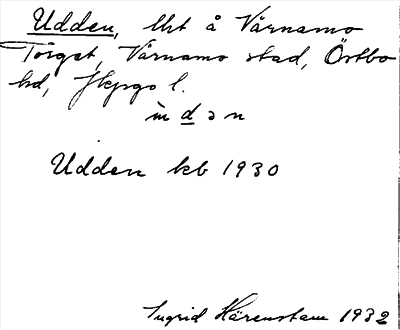 Udden, lht å Värnamo
Törget, Värnamo stad, Östbo
hd, Jkpgs l.
ùdən
Udden kb 1930
Ingrid Härenstam 1932